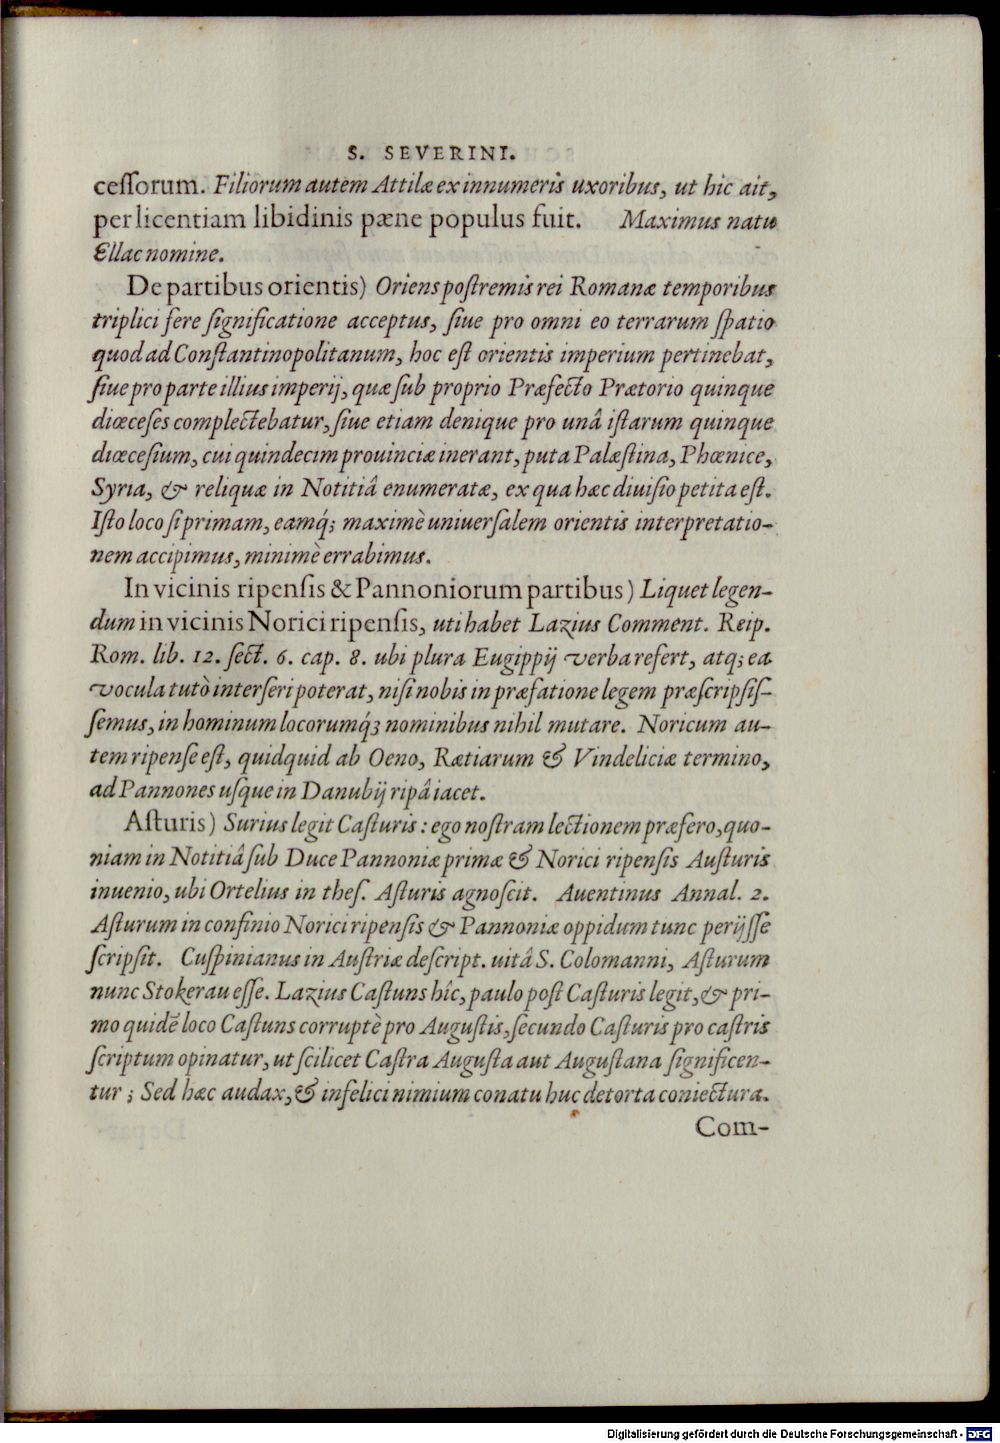 S. SEVERINI.
ceſſorum. Filiorum autem Attilæ ex innumeris uxoribus, ut hic ait,
per licentiam libidinis pæne populus fuit. Maximus natu
Ellac nomine.
De partibus orientis) Oriens poſtremis rei Romanæ temporibus
triplici fere ſignificatione acceptus, ſiue pro omni eo terrarum ſpatio
quod ad Conſtantinopolitanum, hoc eſt orientis imperium pertinebat,
ſiue pro parte illius imperij, quæ ſub proprio Præfecto Prætorio quinque
diœceſes complectebatur, ſiue etiam denique pro unâ iſtarum quinque
diœceſium, cui quindecim prouinciæ inerant, puta Palæſtina, Phœnice,
Syria, & reliquæ in Notitiâ enumeratæ, ex qua hæc diuiſio petita eſt.
Iſto loco ſi primam, eamq́; maximè uniuerſalem orientis interpretatio-
nem accipimus, minimè errabimus.
In vicinis ripenſis & Pannoniorum partibus) Liquet legen-
dum in vicinis Norici ripenſis, uti habet Lazius Comment. Reip.
Rom. lib. 12. ſect. 6. cap. 8. ubi plura Eugippij verba refert, atq; ea
vocula tutò interſeri poterat, niſi nobis in præfatione legem præſcripſiſ-
ſemus, in hominum locorumq́; nominibus nihil mutare. Noricum au-
tem ripenſe eſt, quidquid ab Oeno, Rætiarum & Vindeliciæ termino,
ad Pannones uſque in Danubij ripâ iacet.
Aſturis) Surius legit Caſturis: ego noſtram lectionem præfero, quo-
niam in Notitiâ ſub Duce Pannoniæ primæ & Norici ripenſis Auſturis
inuenio, ubi Ortelius in theſ. Aſturis agnoſcit. Auentinus Annal. 2.
Aſturum in confinio Norici ripenſis & Pannoniæ oppidum tunc perijſſe
ſcripſit. Cuſpinianus in Auſtriæ deſcript. uitâ S. Colomanni, Aſturum
nunc Stokerau eſſe. Lazius Caſtuns hîc, paulo poſt Caſturis legit, & pri-
mo quidē loco Caſtuns corruptè pro Auguſtis, ſecundo Caſturis pro caſtris
ſcriptum opinatur, ut ſcilicet Caſtra Auguſta aut Auguſtana ſignificen-
tur; Sed hæc audax, & infelici nimium conatu huc detorta coniectura.
Com-
Digitalisierung gefördert durch die Deutsche Forschungsgemeinschaft - DFG